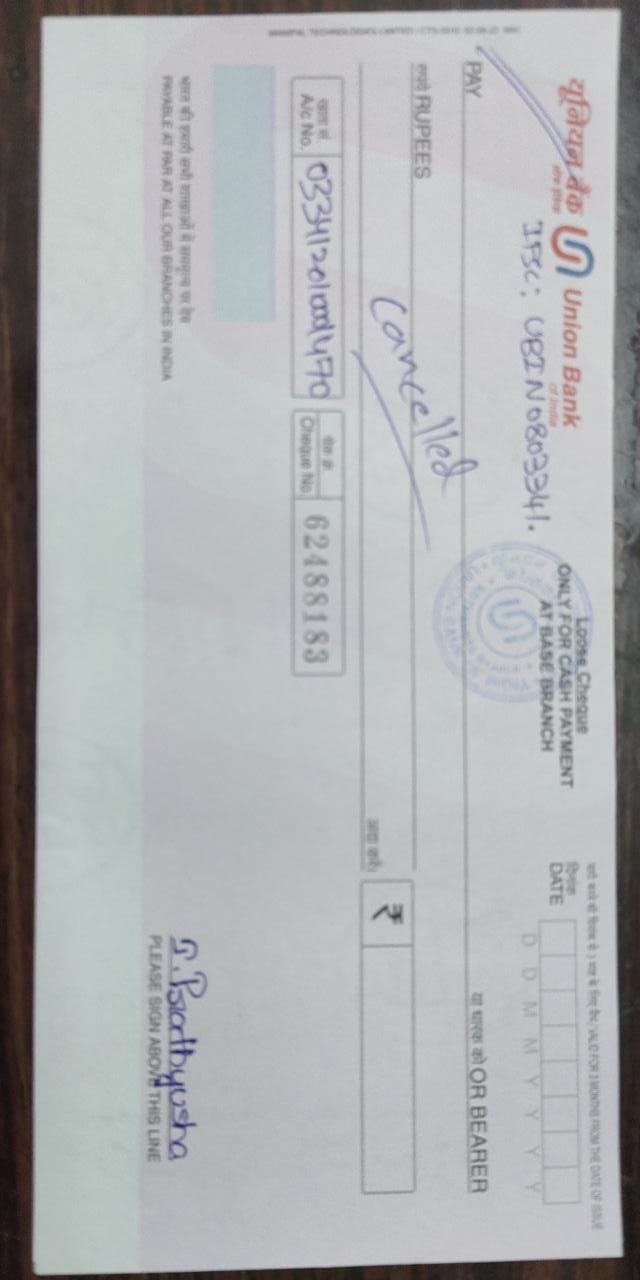 यूनियन बैंक Union Bank
of India
IFSC: UBIN0803341.
Loose Cheque
ONLY FOR CASH PAYMENT
AT BASE BRANCH
VALID FOR 3 MONTHS FROM THE DATE OF ISSUE
दिनांक
DATE
D D M M Y Y Y Y
PAY
या धारक को OR BEARER
रुपये RUPEES
cancelled
अदा करें।
₹
खाता सं.
A/c No.
033412010001470
चेक क्र.
Cheque No.
62488183
भारत की हमारी सभी शाखाओं में सममूल्य पर देय
PAYABLE AT PAR AT ALL OUR BRANCHES IN INDIA
PLEASE SIGN ABOVE THIS LINE